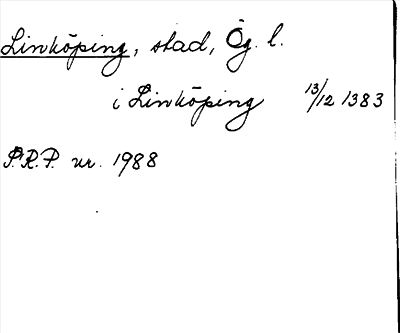 Linköping, stad, Ög. l.
i Linköping 13/12 1383
P.R.P. nr. 1988